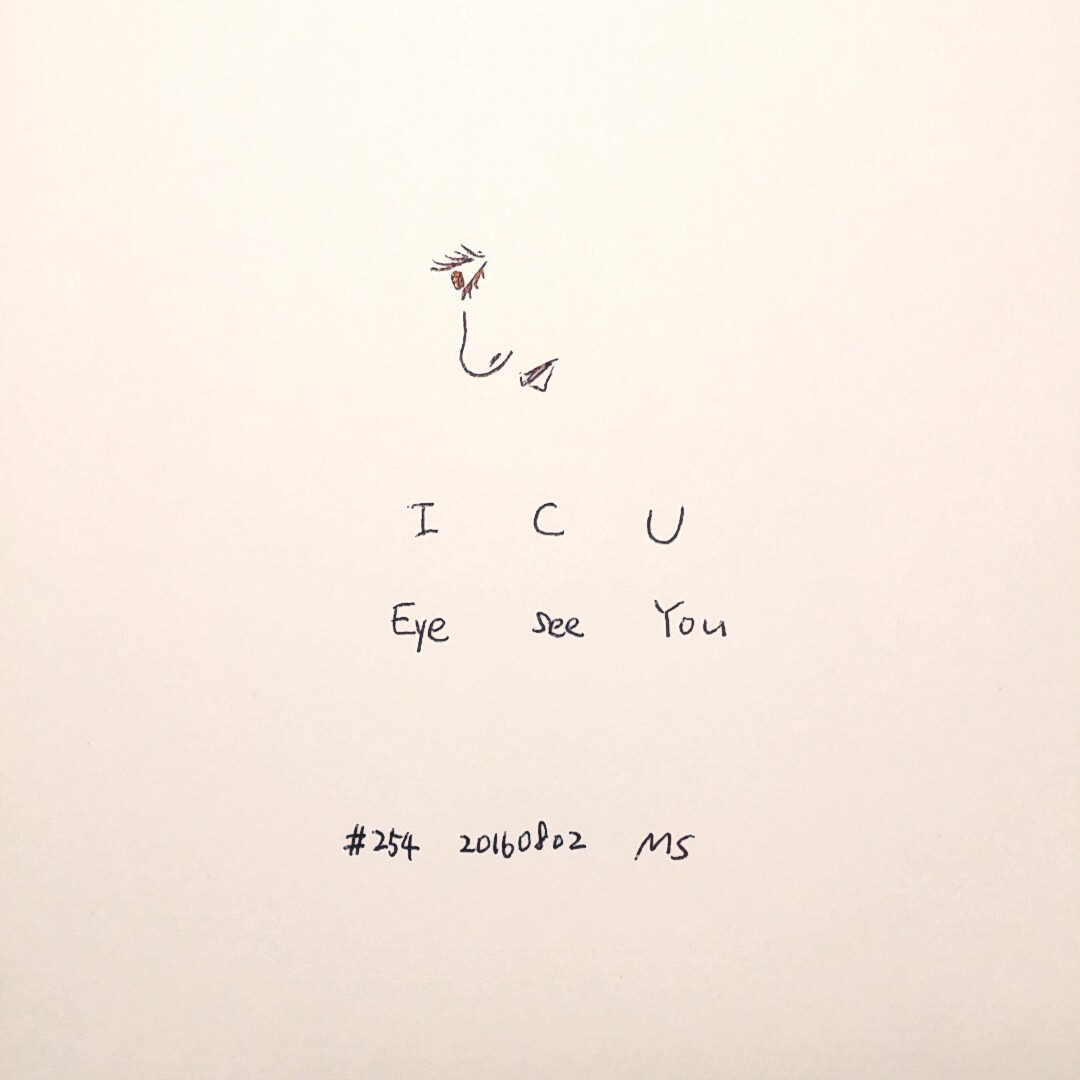 I C U
Eye see You
#254 20160802 MS